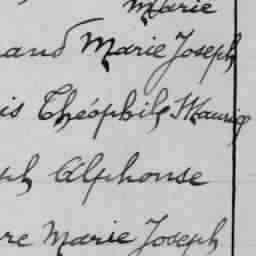 Marie
and Marie Joseph
is Théophile Maurice
ph Alphonse
re Marie Joseph